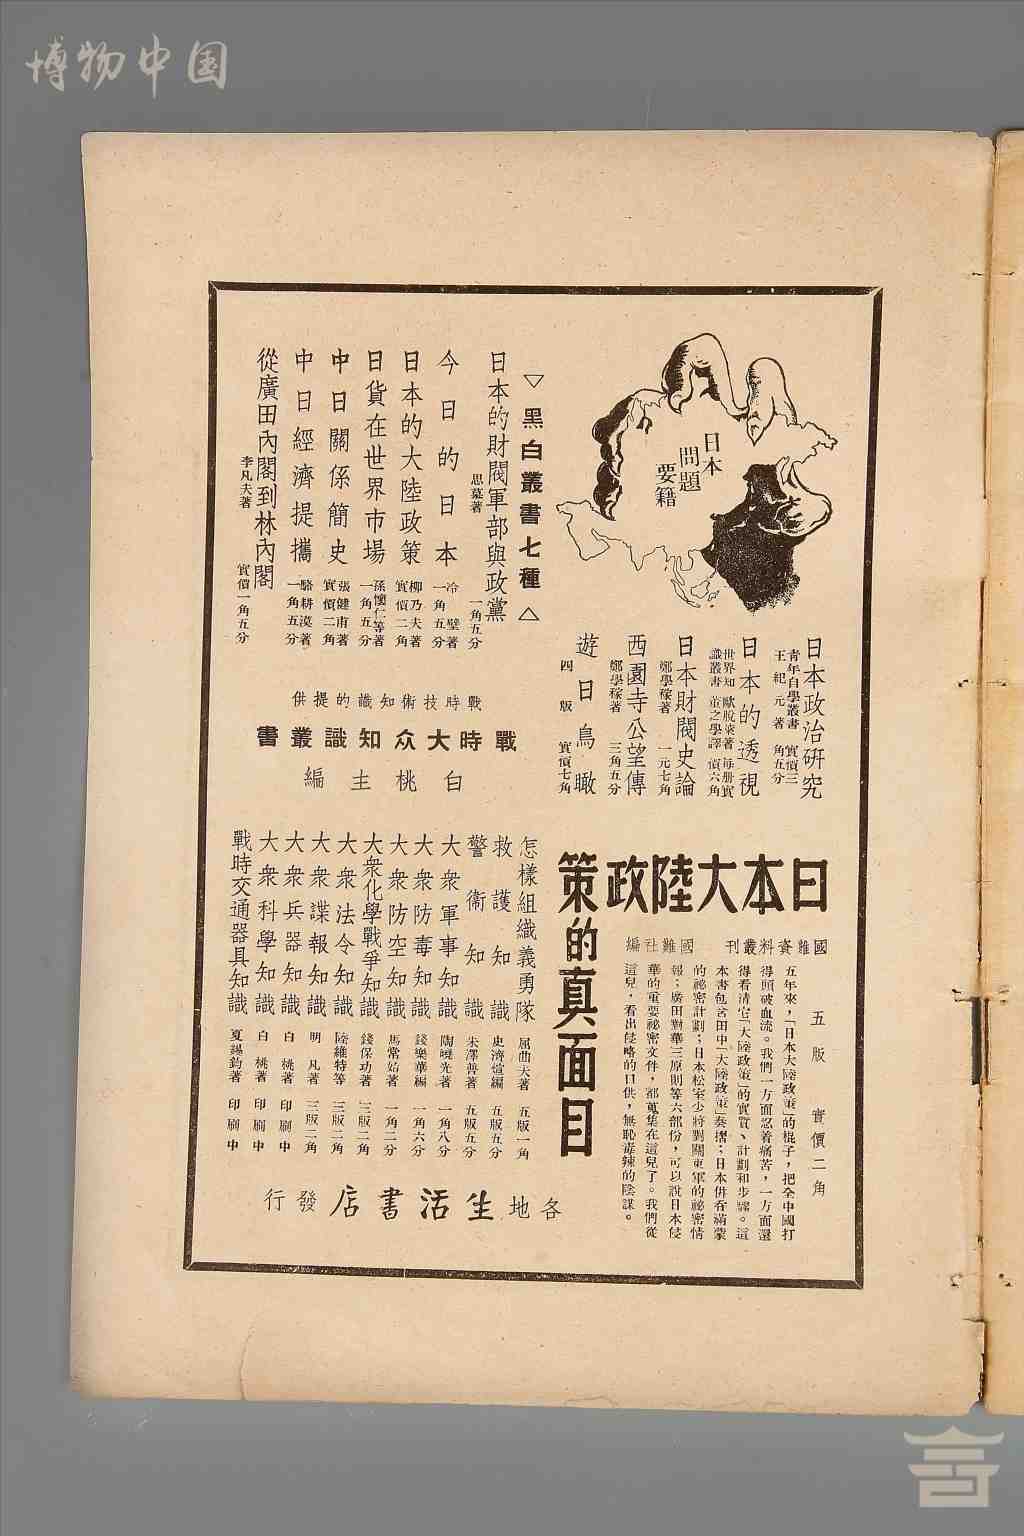 博物中国
日本
問題
要籍
日本政治研究
青年自學叢書 實價三
王紀元著 角五分
日本的透視
世界知 歐脫萊著 每册實
識叢書 董之學譯 價六角
日本財閥史論
鄭學稼著 一元七角
西園寺公望傳
鄭學稼著 三角五分
遊日鳥瞰
四版 實價七角
▽黑白叢書七種△
日本的財閥軍部與政黨
思慕著 一角五分
今日的日本
冷壁著
一角五分
日本的大陸政策
柳乃夫著
實價二角
日貨在世界市場
孫懷仁等著
一角五分
中日關係簡史
張健甫著
實價二角
中日經濟提攜
駱耕漠著
一角五分
從廣田內閣到林內閣
李凡夫著 實價一角五分
戰時技術知識的提供
戰時大众知識叢書
白桃主編
怎樣組織義勇隊 屈曲夫著 五版一角
救護知識 史濟煊編 五版五分
警衞知識 朱澤善著 五版五分
大衆軍事知識 陶曉光著 一角八分
大衆防毒知識 錢樂華編 一角六分
大衆防空知識 馬常始著 一角二分
大衆化學戰爭知識 錢保功著 三版二角
大衆法令知識 陸維特等 三版二角
大衆諜報知識 明凡著 三版二角
大衆兵器知識 白桃著 印刷中
大衆科學知識 白桃著 印刷中
戰時交通器具知識 夏錫鈞著 印刷中
日本大陸政策的真面目
國難資料叢刊 國難社編
五版 實價二角
五年來，「日本大陸政策」的棍子，把全中國打
得頭破血流。我們一方面忍着痛苦，一方面還
得看清它「大陸政策」的實質、計劃和步驟。這
本書包含田中「大陸政策」奏摺；日本併吞滿蒙
的祕密計劃；日本松室少將對關東軍的祕密情
報；廣田對華三原則等六部份，可以說日本侵
華的重要祕密文件，都蒐集在這兒了。我們從
這兒，看出侵略的口供，無恥毒辣的陰謀。
各地生活書店發行